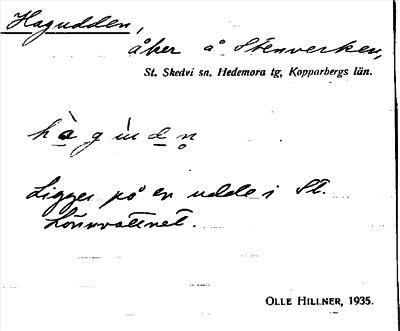 Hagudden,
åker å Stenverken,
St. Skedvi sn, Hedemora tg, Kopparbergs län.
Ligger på en udde i St.
Lönnvattnet.
OLLE HILLNER, 1935.